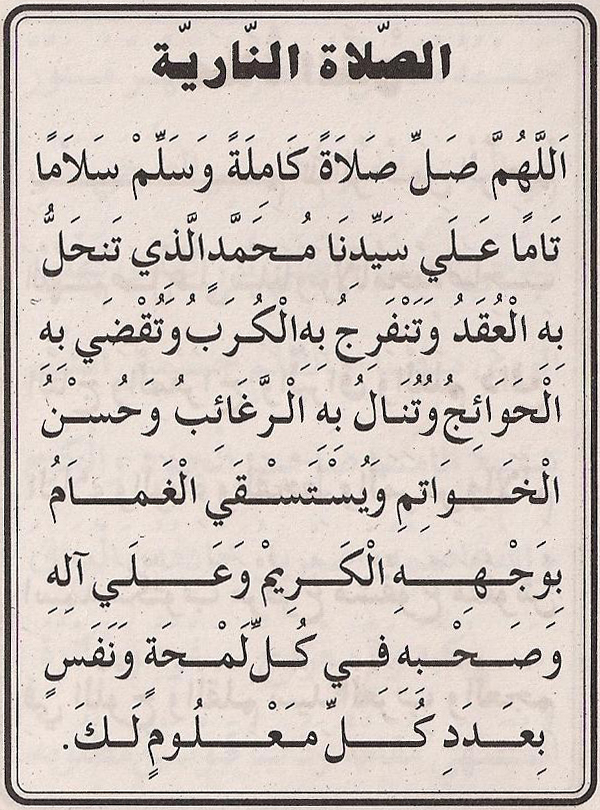 الصّلاة النّاريّة
اَللَّهُمَّ صَلِّ صَلَاةً كَامِلَةً وَسَلِّمْ سَلَامًا
تَامًا عَلَي سَيِّدِنَا مُحَمَّدِ الَّذي تَنحَلُّ
بِهِ الْعُقَدُ وَتَنْفَرِجُ بِهِ الْكُرَبُ وَتُقْضَي بِهِ
الْحَوَائِجُ وَتُنَالُ بِهِ الْرَّغَائِبُ وَحُسْنُ
الْخَوَاتِمِ وَيُسْتَسْقَي الْغَمَامُ
بِوَجْهِهِ الْكَرِيمْ وَعَلَي آلِهِ
وَصَحْبِهِ فِي كُلِّ لَمْحَةٍ وَنَفَسٍ
بِعَدَدِ كُلِّ مَعْلُومٍ لَكَ.